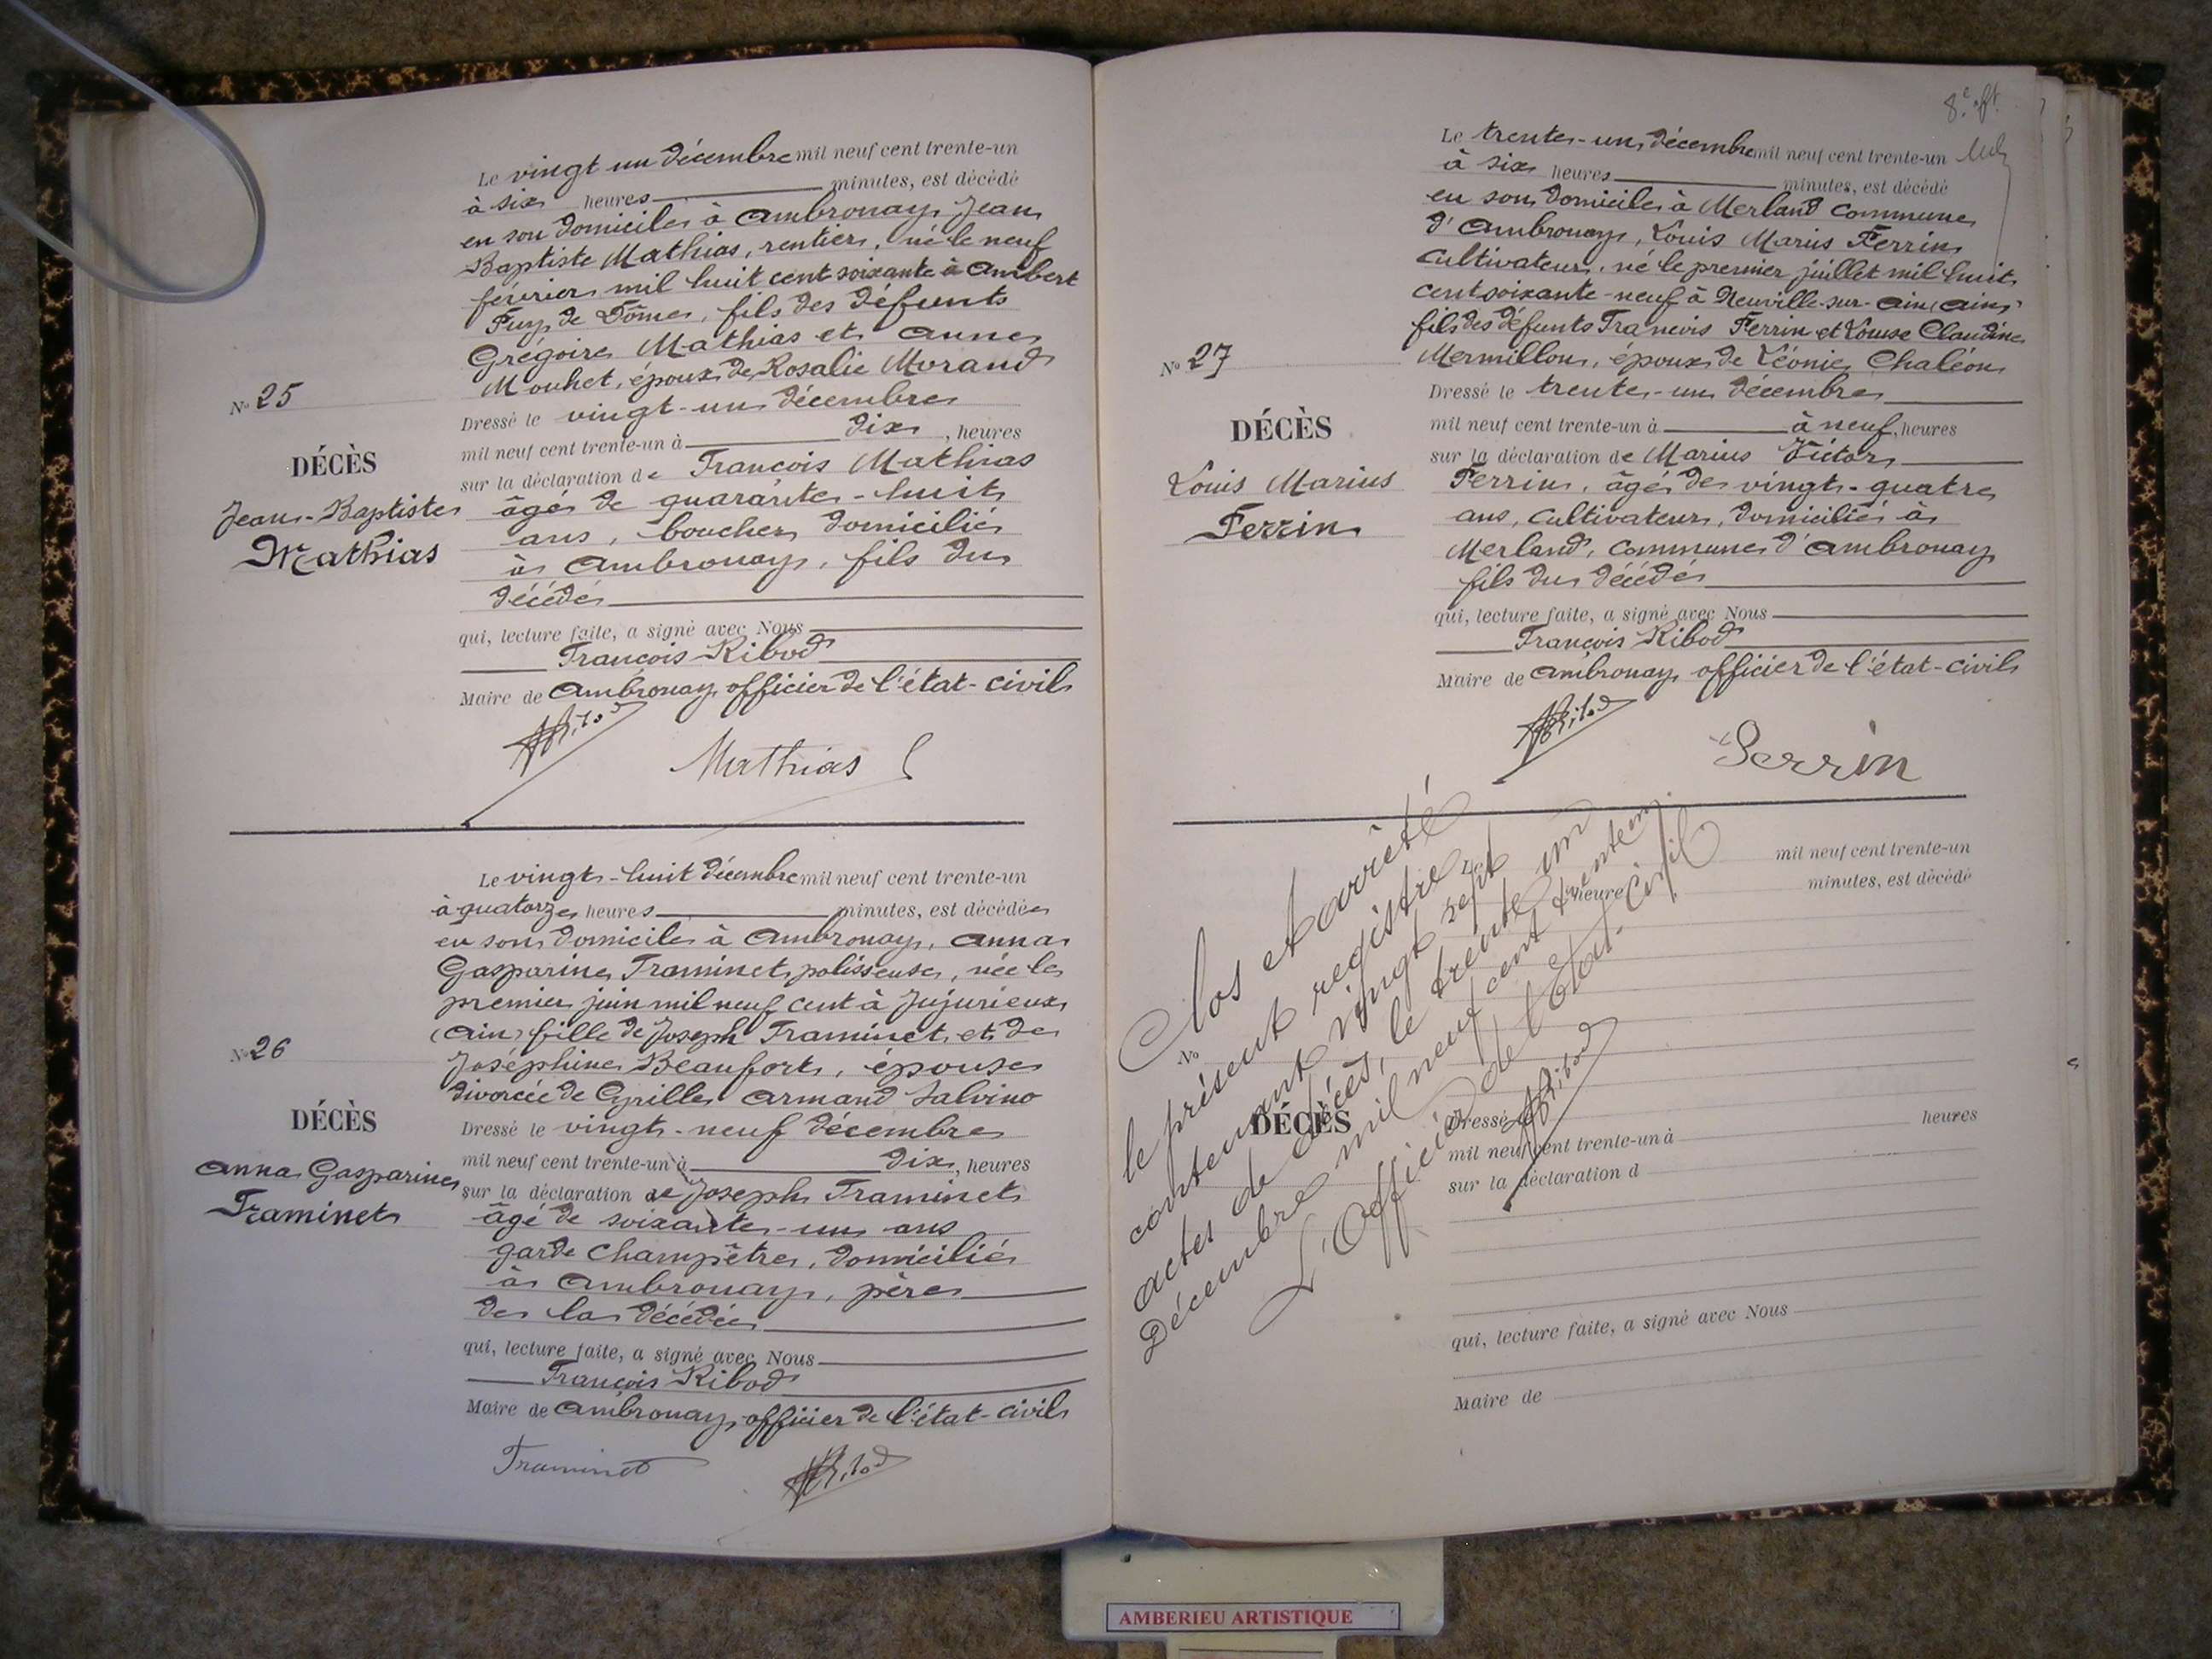 Le vingt un décembre mil neuf cent trente-un
à six heures minutes, est décédé
en son domicile à Ambronay, Jean
Baptiste Mathias, rentier, né le neuf
février mil huit cent soixante à Ambert
Puy de Dôme, fils des défunts
Grégoire Mathias et Anne
Mouhet, époux de Rosalie Morand
No 25
Dressé le vingt-un décembre
mil neuf cent trente-un à dix, heures
DÉCÈS
sur la déclaration de François Mathias
Jean-Baptiste
Mathias
âgé de quarante-huit
ans, boucher domicilié
à Ambronay, fils du
décédé
qui, lecture faite, a signé avec Nous
François Ribod
Maire de Ambronay officier de l'état-civil
Ribod
Mathias
Le vingt-huit décembre mil neuf cent trente-un
à quatorze heures minutes, est décédée
en son domicile à Ambronay, Anna
Gasparine Traminet, polisseuse, née le
premier juin mil neuf cent à Jujurieux
(Ain) fille de Joseph Traminet et de
No 26
Joséphine Beaufort, épouse
divorcée de Cyrille Armand Salvino
DÉCÈS
Dressé le vingt-neuf décembre
mil neuf cent trente-un à dix, heures
Anna Gasparine
Traminet
sur la déclaration de Joseph Traminet
âgé de soixante-un ans
garde champêtre, domicilié
à Ambronay, père
de la décédée
qui, lecture faite, a signé avec Nous
François Ribod
Maire de Ambronay officier de l'état-civil
Traminet
Ribod
Le trente-un décembre mil neuf cent trente-un
à six heures minutes, est décédé
en son domicile à Merland commune
d'Ambronay, Louis Marius Perrin
cultivateur, né le premier juillet mil huit
cent soixante-neuf à Neuville-sur-Ain (Ain)
fils des défunts François Perrin et Louise Claudine
No 27
Mermillon, époux de Léonie Chaléon
Dressé le trente-un décembre
DÉCÈS
mil neuf cent trente-un à à neuf, heures
sur la déclaration de Marius Victor
Louis Marius
Perrin
Perrin, âgé de vingt-quatre
ans, cultivateur, domicilié à
Merland, commune d'Ambronay
fils du décédé
qui, lecture faite, a signé avec Nous
François Ribod
Maire de Ambronay officier de l'état-civil
Ribod
Perrin
Clos et arrêté
le présent registre
contenant vingt sept
actes de décès, le trente un
Décembre mil neuf cent trente un.
L'Officier de l'Etat-Civil
Ribod
Le mil neuf cent trente-un
heures minutes, est décédé
No
DÉCÈS
Dressé le
mil neuf cent trente-un à heures
sur la déclaration d
qui, lecture faite, a signé avec Nous
Maire de
AMBERIEU ARTISTIQUE